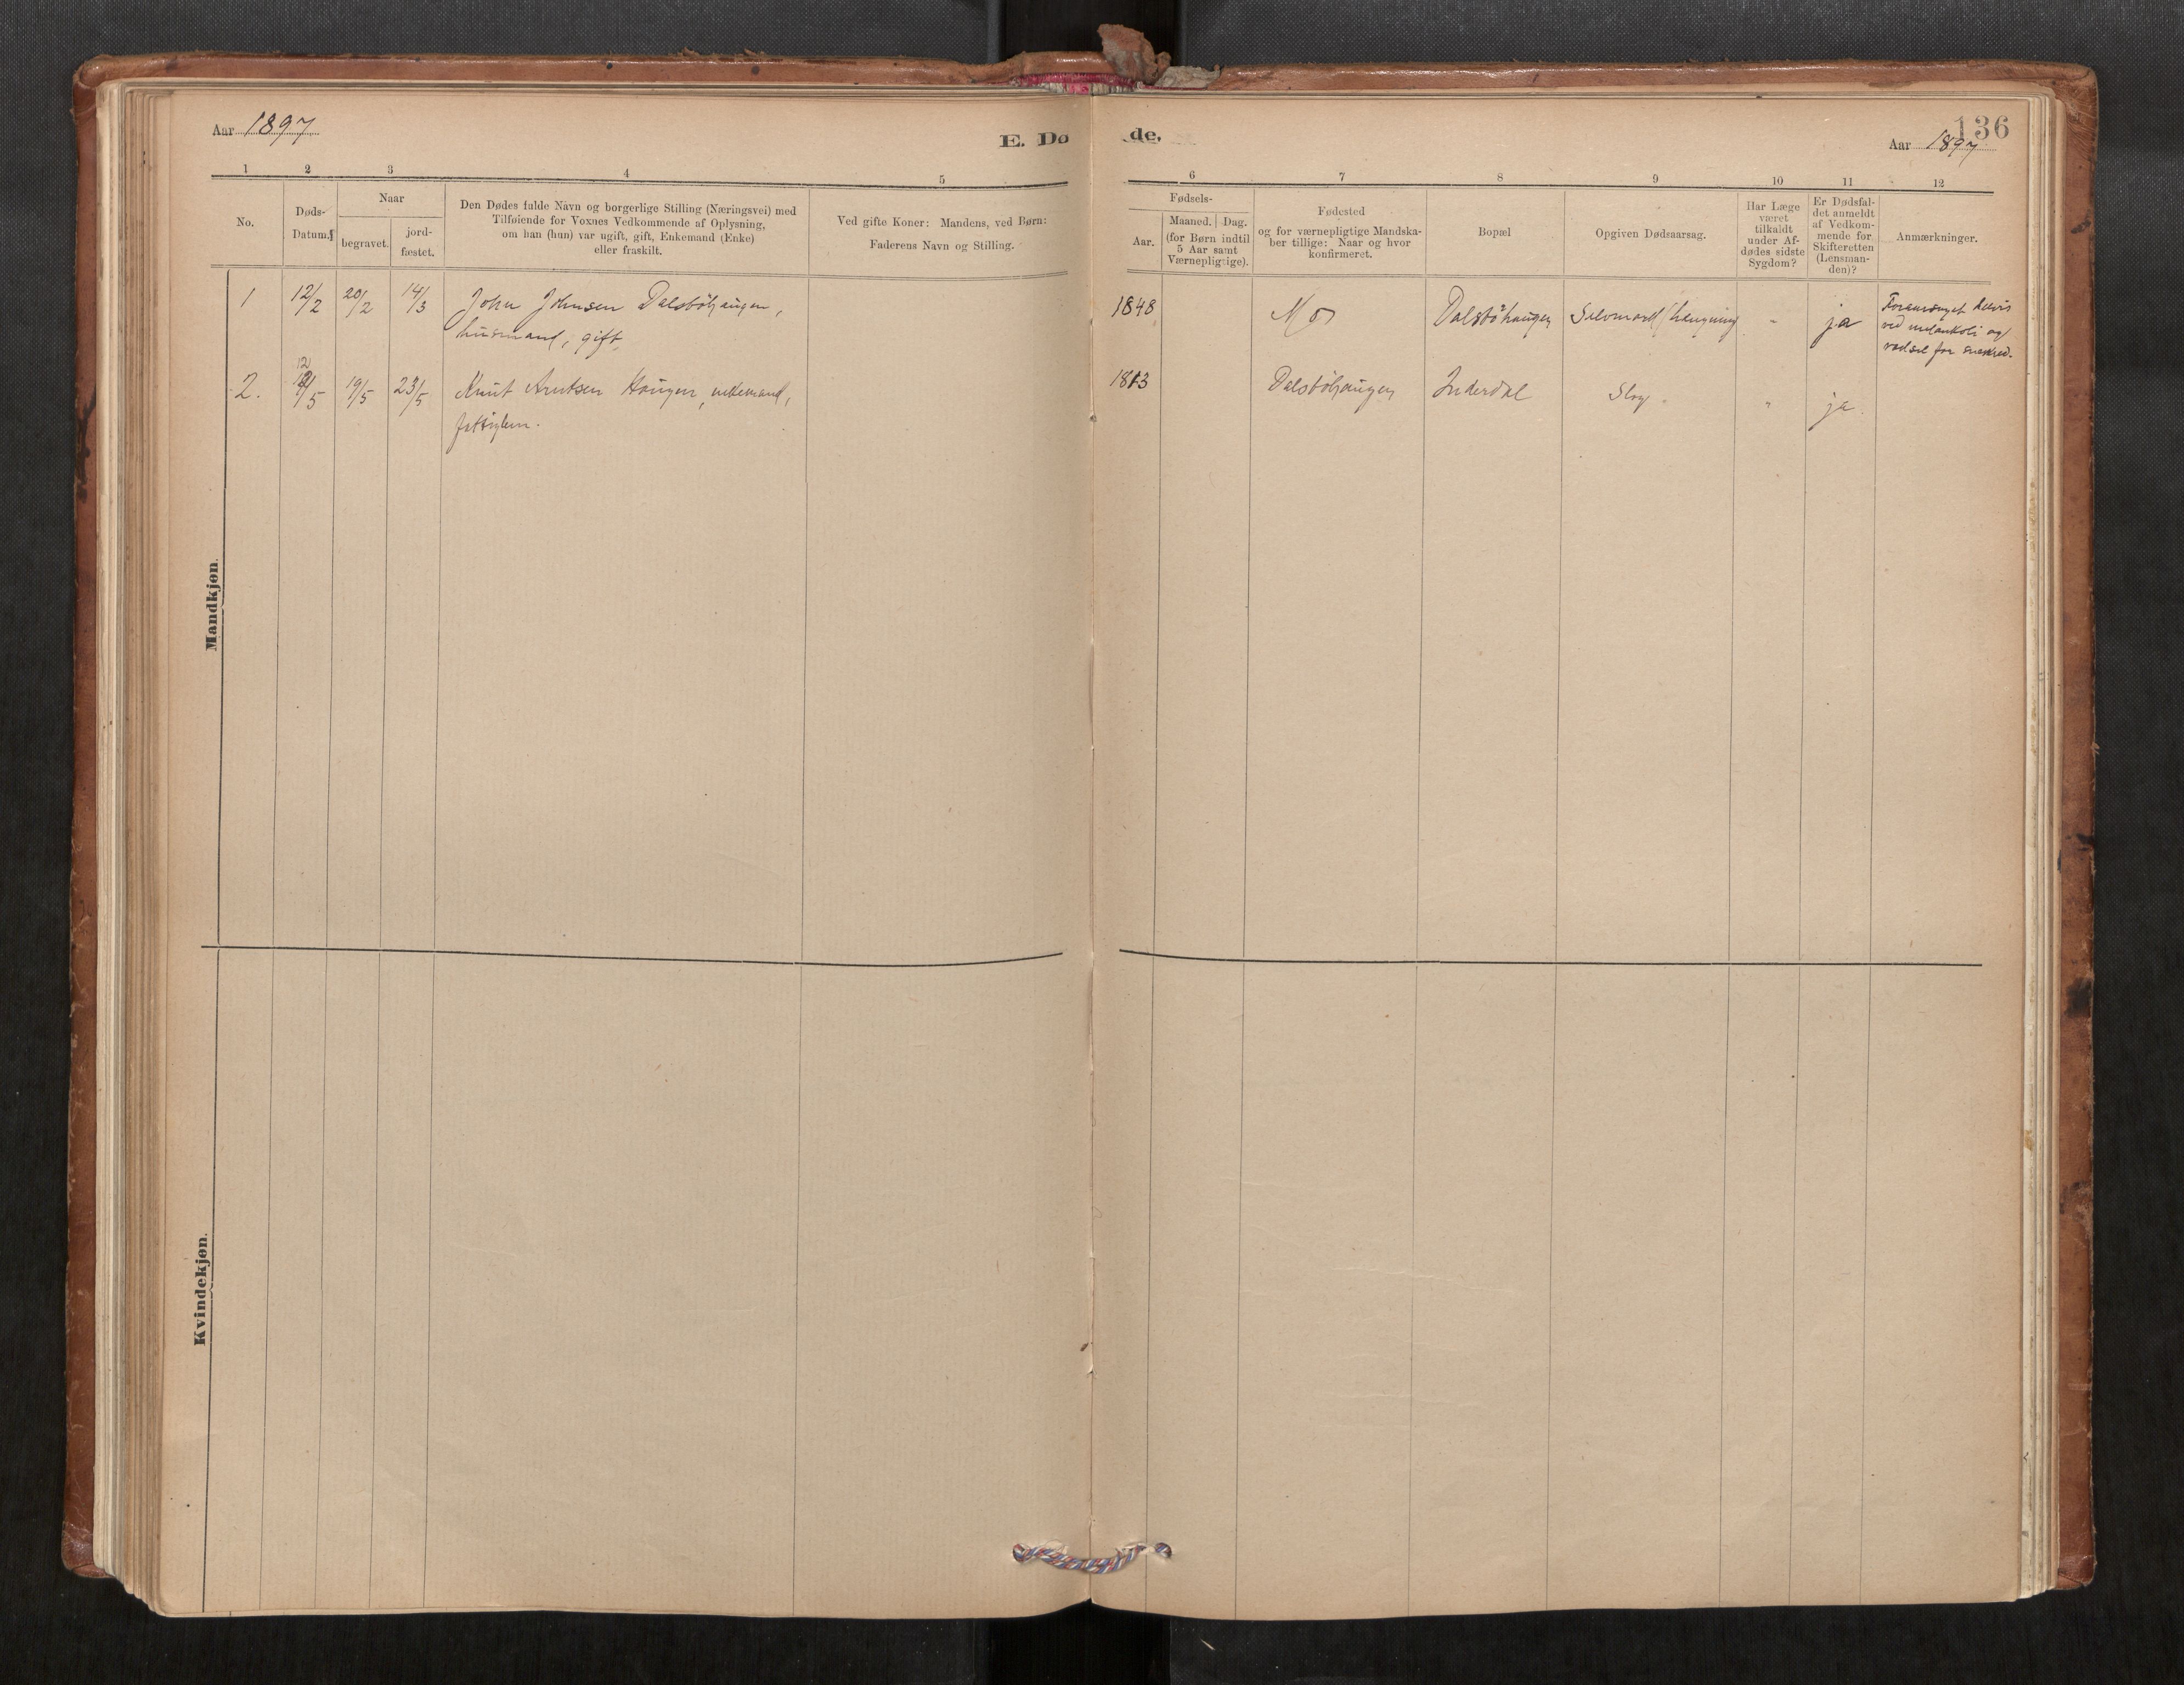 Aar 1897
E. Dø
de.
136
Aar 1897
1 2 3 4 5
6 7 8 9 10 11 12
No.
Døds-
Datum.
Naar
begravet.
jord-
fæstet.
Den Dødes fulde Navn og borgerlige Stilling (Næringsvei) med
Tilføiende for Voxnes Vedkommende af Oplysning,
om han (hun) var ugift, gift, Enkemand (Enke)
eller fraskilt.
Ved gifte Koner: Mandens, ved Børn:
Faderens Navn og Stilling.
Fødsels-
Aar.
Maaned. Dag.
(for Børn indtil
5 Aar samt
Værnepligtige).
Fødested
og for værnepligtige Mandska-
ber tillige: Naar og hvor
konfirmeret.
Bopæl
Opgiven Dødsaarsag.
Har Læge
været
tilkaldt
under Af-
dødes sidste
Sygdom?
Er Dødsfal-
det anmeldt
af Vedkom-
mende for
Skifteretten
(Lensman-
den)?
Anmærkninger.
Mandkjøn.
1 12/2 20/2 14/3 John Johnsen Dalsböhaugen,
husmand, gift
1848 Mo Dalsböhaugen Selvmord (hængning) " ja
ved melankoli og
2. 12/5 19/5 23/5 Knut Arntsen Haugen, enkemand,
fattiglem.
1813 Dalsböhaugen Inderdal Slag " ja
Kvindekjøn.